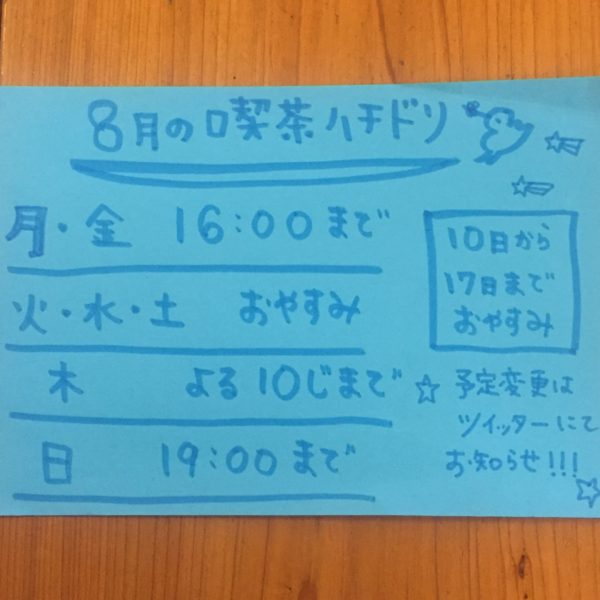 8月の喫茶ハチドリ
月・金 16:00まで
火・水・土 おやすみ
木 よる10じまで
日 19:00まで
10日から
17日まで
おやすみ
☆予定変更は
ツイッターにて
お知らせ!!!